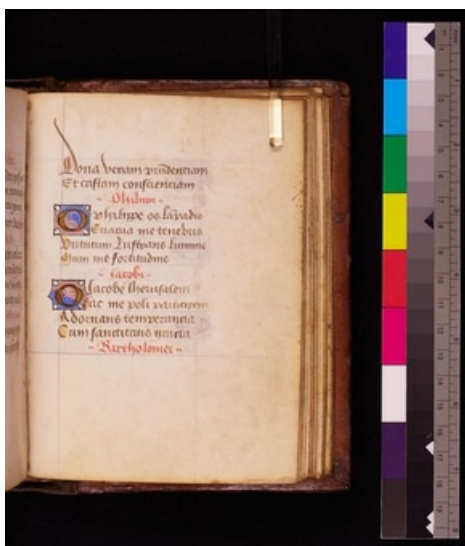 Dona veram prudentiam
Et castam conscientiam
Philippi
O philippe os lapadis
Euacua me tenebris
Virtutum lustrans lumine
me fortitudine
Jacobi
O Jacobe Iherusalem
Fac me poli participem
Adornans temperancia
Cum sanctitatis gracia
Bartholomei